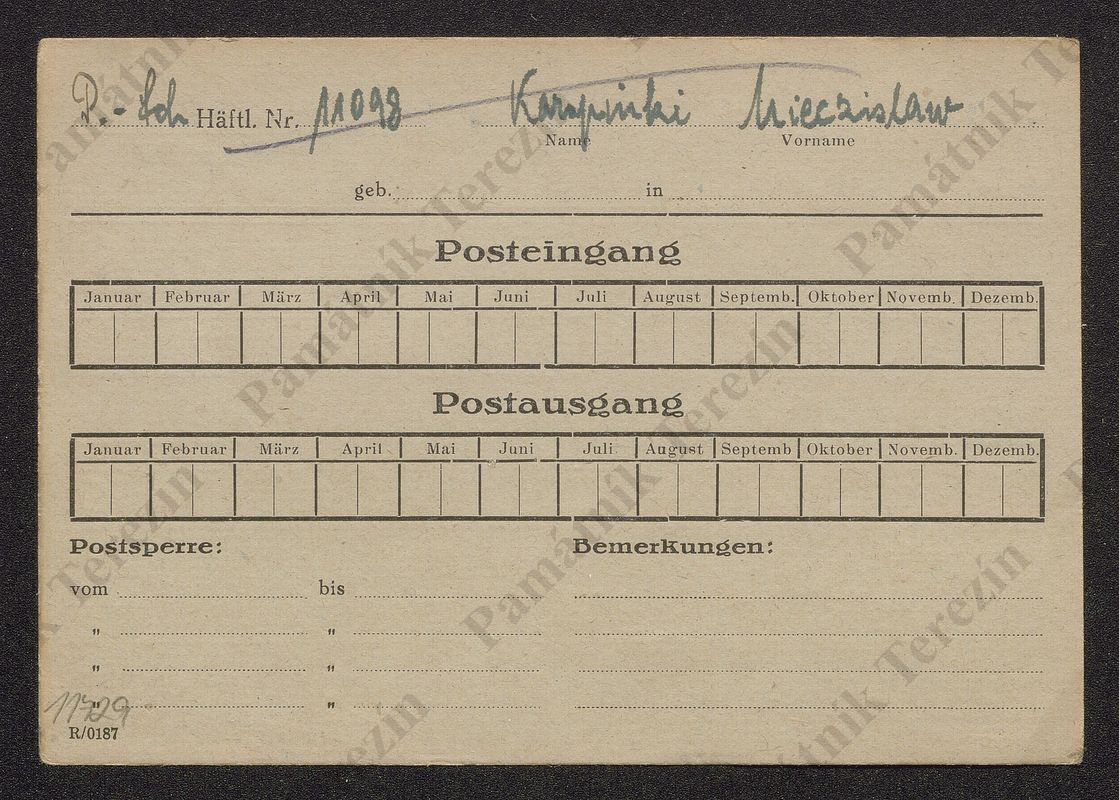 P.-Sch Häftl. Nr. 11098 Karspinski Mieczislaw
Name Vorname
geb. in
Posteingang
Januar Februar März April Mai Juni Juli August Septemb. Oktober Novemb. Dezemb.
Postausgang
Januar Februar März April Mai Juni Juli August Septemb Oktober Novemb. Dezemb.
Postsperre: Bemerkungen:
vom bis
" "
" "
" "
11729
R/0187
Památník Terezín